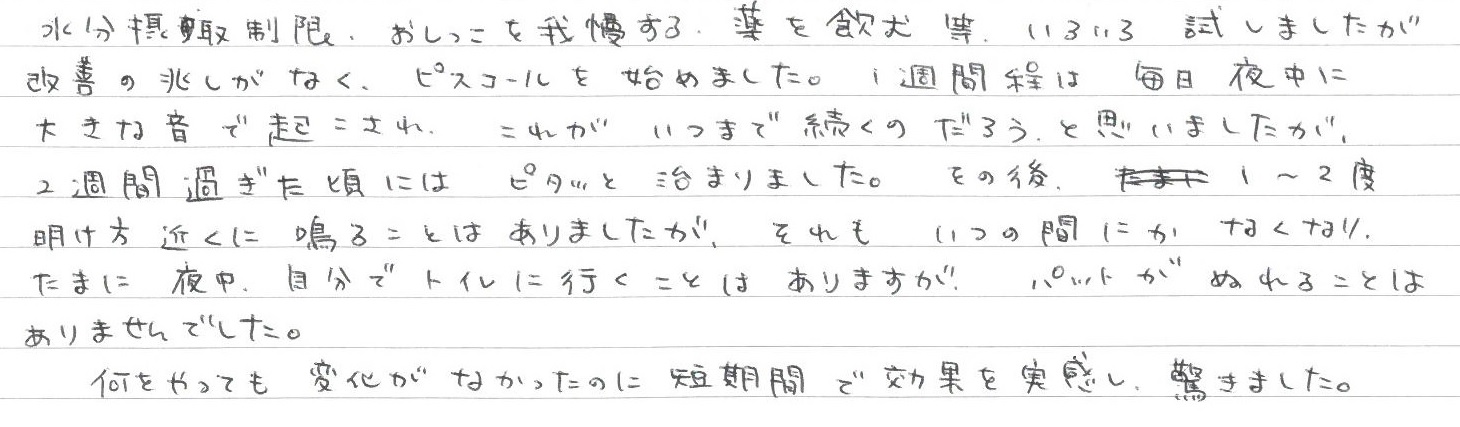 水分摂取制限、おしっこを我慢する、薬を飲む 等、いろいろ 試しましたが
改善の兆しがなく、ピスコールを始めました。1週間程は 毎日 夜中に
大きな音で起こされ、これが いつまで続くのだろう、と思いましたが、
2週間過ぎた頃には ピタッと 治まりました。その後、1～2度
明け方近くに 鳴ることはありましたが、それも いつの間にか なくなり、
たまに 夜中、自分でトイレに行くことはありますが、パットがぬれることは
ありませんでした。
何をやっても 変化がなかったのに 短期間で効果を実感し、驚きました。